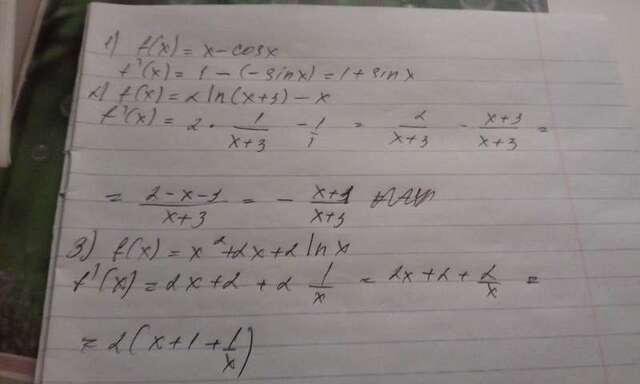 1) f(x) = x - cosx
f'(x) = 1 - (-sinx) = 1 + sinx
2) f(x) = 2 ln(x+3) - x
f'(x) = 2 · 1/(x+3) - 1/1 = 2/(x+3) - (x+3)/(x+3) =
= (2-x-1)/(x+3) = - (x+1)/(x+3)
3) f(x) = x² + 2x + 2 ln x
f'(x) = 2x + 2 + 2 1/x = 2x + 2 + 2/x =
= 2(x + 1 + 1/x)